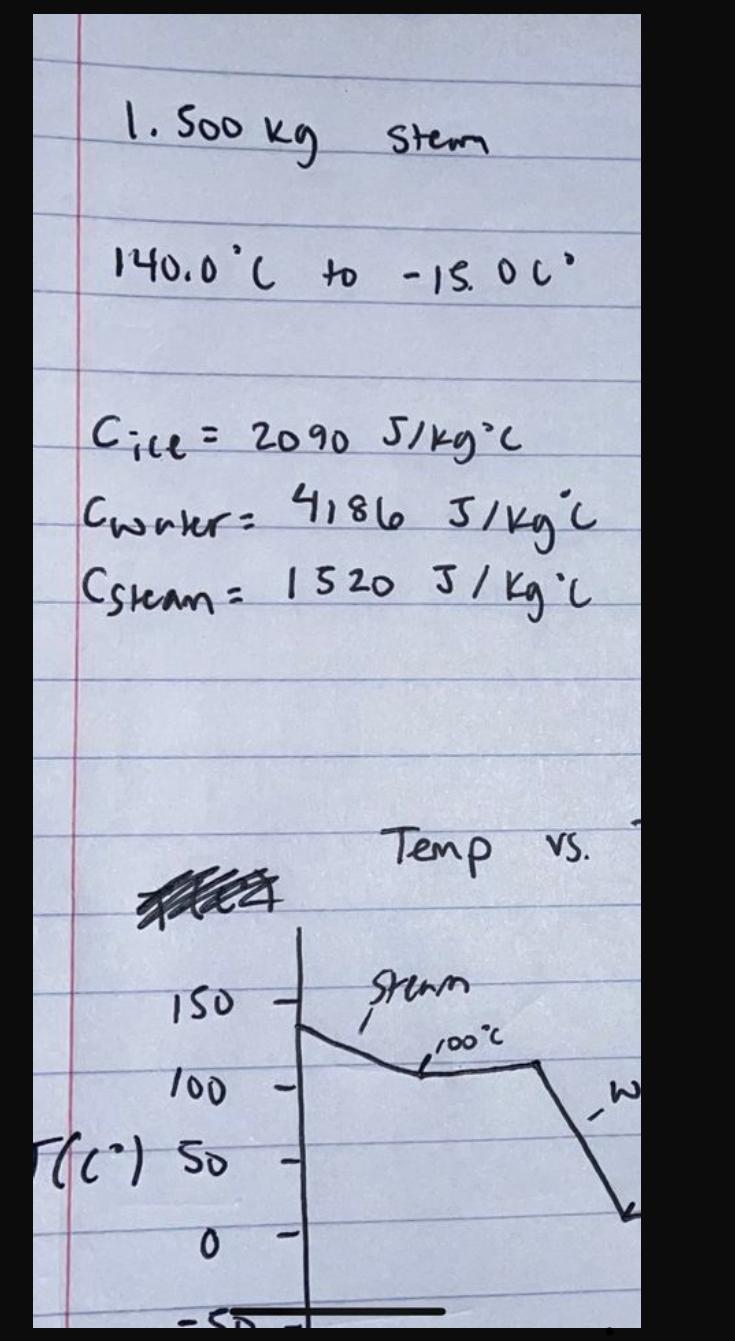 1.500 kg steam
140.0°C to -15.0 C°
Cice = 2090 J/kg°C
Cwater = 4186 J/kg°C
Csteam = 1520 J/kg°C
Temp vs.
150
steam
100°C
100
W
T(C°) 50
0
-50